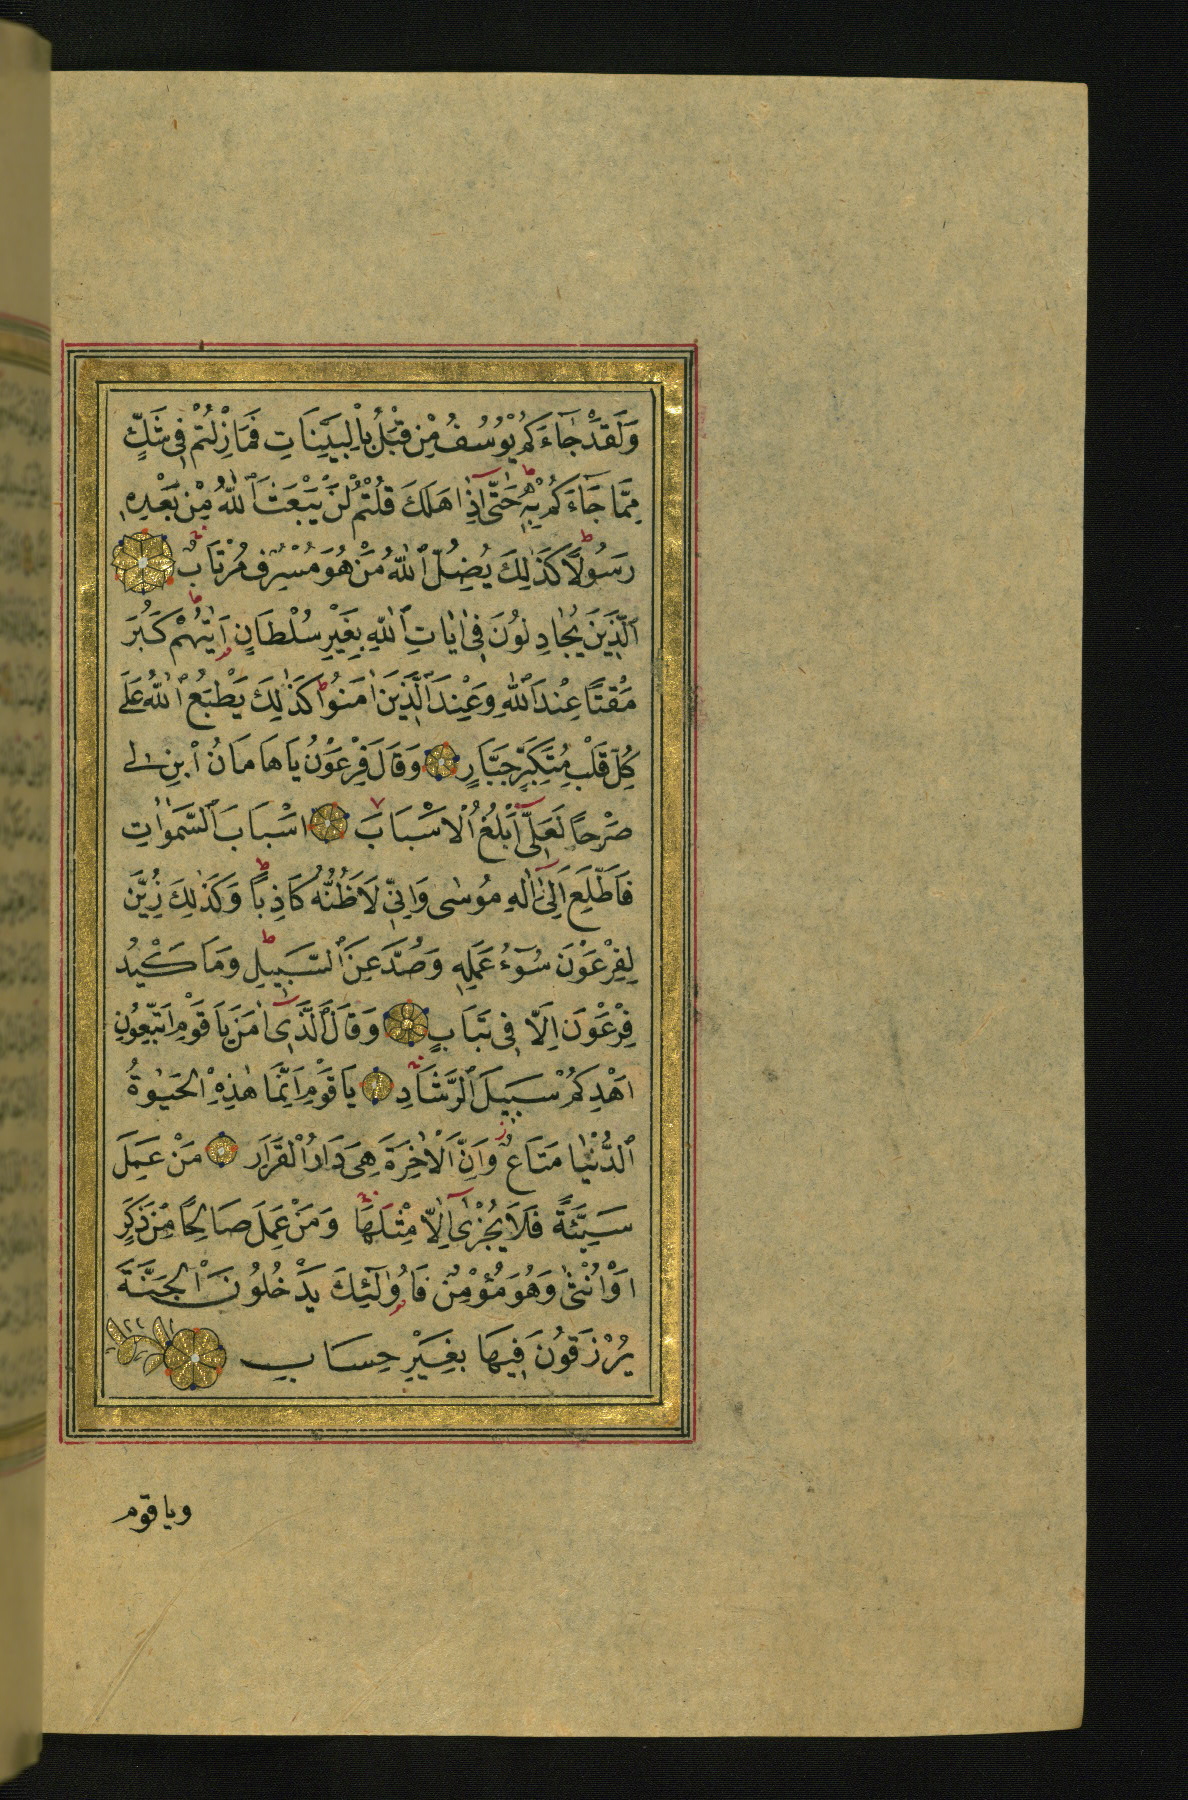 وَلَقَدْ جَاءَكُمْ يُوسُفُ مِنْ قَبْلُ بِالْبَيِّنَاتِ فَمَا زِلْتُمْ فِى شَكٍّ
مِمَّا جَاءَكُمْ بِهِ حَتَّى اِذَا هَلَكَ قُلْتُمْ لَنْ يَبْعَثَ اللّٰهُ مِنْ بَعْدِهِ
رَسُولًا كَذٰلِكَ يُضِلُّ اللّٰهُ مَنْ هُوَ مُسْرِفٌ مُرْتَابٌ
اَلَّذِينَ يُجَادِلُونَ فِى اٰيَاتِ اللّٰهِ بِغَيْرِ سُلْطَانٍ اَتٰيهُمْ كَبُرَ
مَقْتًا عِنْدَ اللّٰهِ وَعِنْدَ الَّذِينَ اٰمَنُوا كَذٰلِكَ يَطْبَعُ اللّٰهُ عَلَى
كُلِّ قَلْبِ مُتَكَبِّرٍ جَبَّارٍ وَقَالَ فِرْعَوْنُ يَا هَامَانُ ابْنِ لِى
صَرْحًا لَعَلِّى اَبْلُغُ الْاَسْبَابَ اَسْبَابَ السَّمٰوَاتِ
فَاَطَّلِعَ اِلٰى اِلٰهِ مُوسٰى وَاِنِّى لَاَظُنُّهُ كَاذِبًا وَكَذٰلِكَ زُيِّنَ
لِفِرْعَوْنَ سُوٓءُ عَمَلِهِ وَصُدَّ عَنِ السَّبِيلِ وَمَا كَيْدُ
فِرْعَوْنَ اِلَّا فِى تَبَابٍ وَقَالَ الَّذِى اٰمَنَ يَا قَوْمِ اتَّبِعُونِ
اَهْدِكُمْ سَبِيلَ الرَّشَادِ يَا قَوْمِ اِنَّمَا هٰذِهِ الْحَيٰوةُ
الدُّنْيَا مَتَاعٌ وَاِنَّ الْاٰخِرَةَ هِىَ دَارُ الْقَرَارِ مَنْ عَمِلَ
سَيِّئَةً فَلَا يُجْزٰى اِلَّا مِثْلَهَا وَمَنْ عَمِلَ صَالِحًا مِنْ ذَكَرٍ
اَوْ اُنْثٰى وَهُوَ مُؤْمِنٌ فَاُولٰٓئِكَ يَدْخُلُونَ الْجَنَّةَ
يُرْزَقُونَ فِيهَا بِغَيْرِ حِسَابٍ
ويا قوم